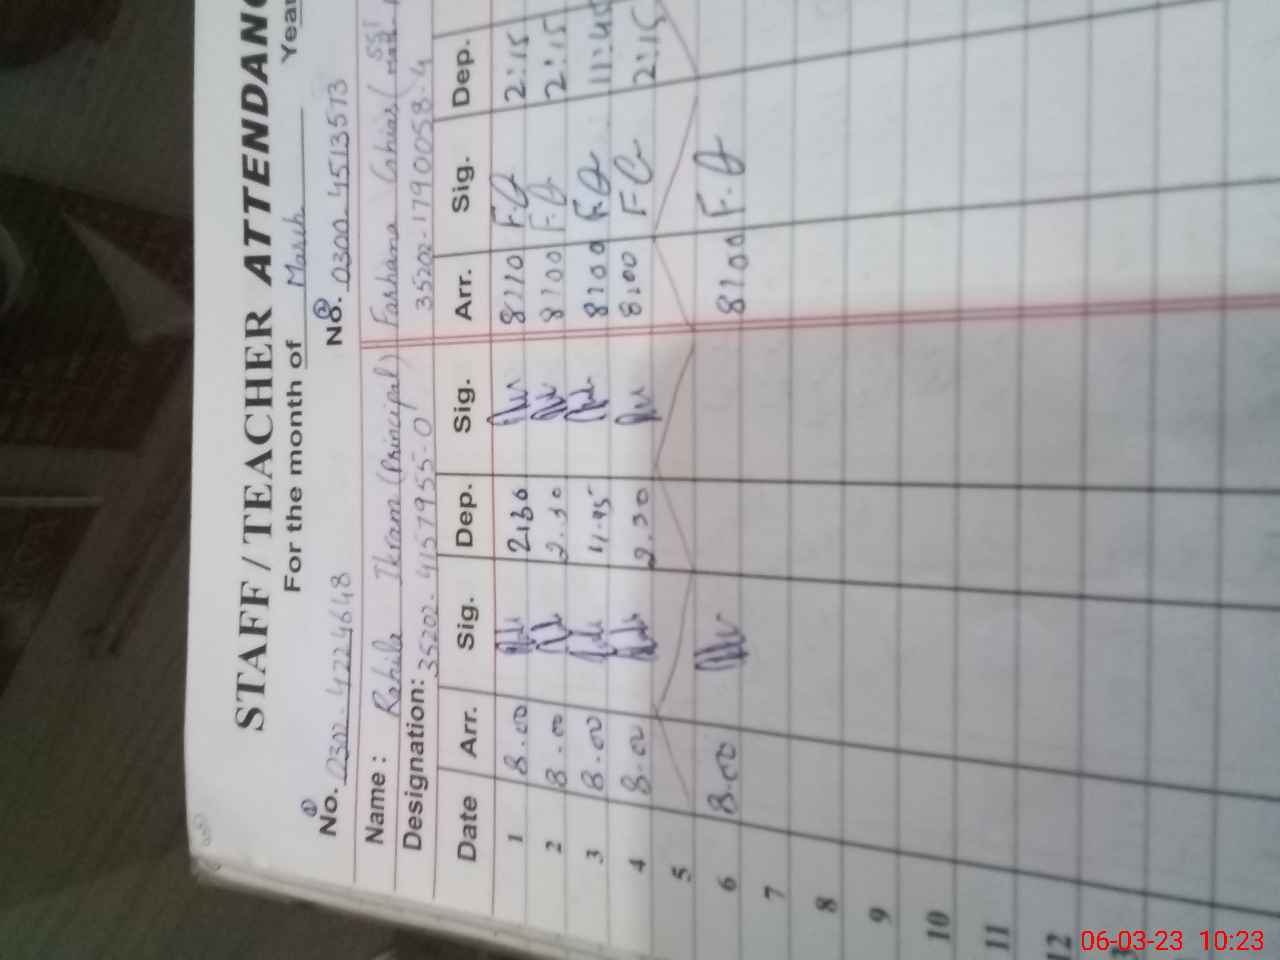 STAFF / TEACHER ATTENDANC
For the month of March Year
No. ① 0302-4224648 No. ② 0300-4513573
Name: Rahila Ikram (Principal) Farhana (SST
Designation: 35202-4157955-0 35202-1790058-4
Date Arr. Sig. Dep. Sig. Arr. Sig. Dep.
1 8.00 2:30 8:10 F.Q 2:15
2 8.00 2.30 8:00 F.Q 2:15
3 8.00 11.45 8:00 F.Q 11:45
4 8.00 2.30 8:00 F.Q 2:15
5
6 8.00 8:00 F.Q
7
8
9
10
11
12
06-03-23 10:23